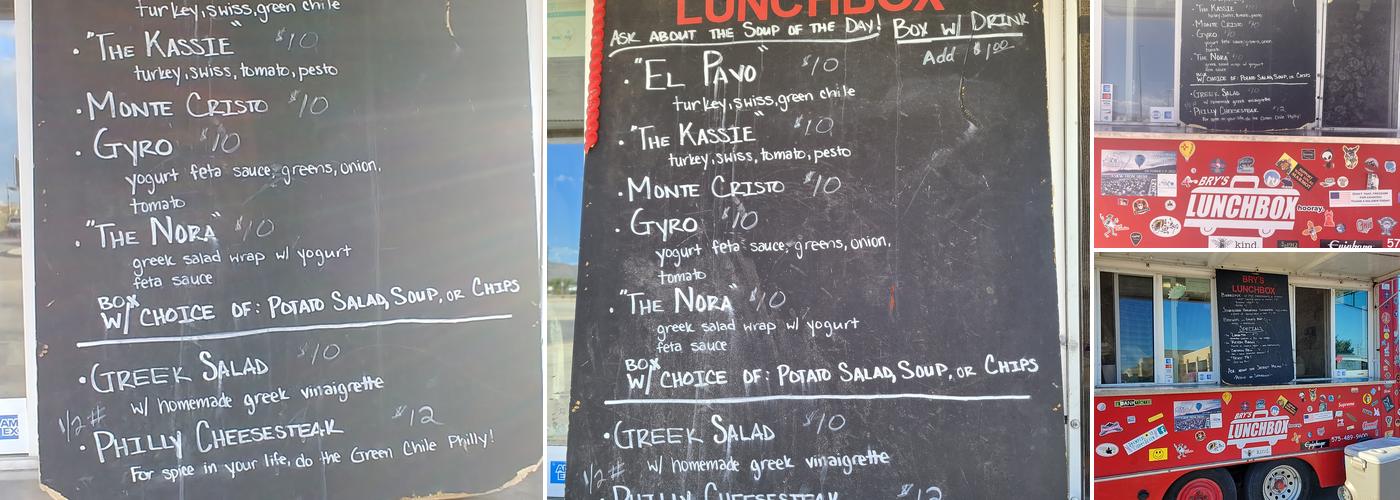 turkey, swiss, green chile
"The Kassie" $10
turkey, swiss, tomato, pesto
Monte Cristo $10
Gyro $10
yogurt feta sauce, greens, onion,
tomato
"The Nora" $10
greek salad wrap w/ yogurt
feta sauce
Box
w/ Choice of: Potato Salad, Soup, or Chips
Greek Salad $10
w/ homemade greek vinaigrette
1/2 #
Philly Cheesesteak $12
For spice in your life, do the Green Chile Philly!
AM
EX
LUNCHBOX
Ask about the Soup of the Day! Box w/ Drink
Add $1.00
"El Pavo" $10
turkey, swiss, green chile
"The Kassie" $10
turkey, swiss, tomato, pesto
Monte Cristo $10
Gyro $10
yogurt feta sauce, greens, onion,
tomato
"The Nora" $10
greek salad wrap w/ yogurt
feta sauce
Box
w/ Choice of: Potato Salad, Soup, or Chips
Greek Salad $10
w/ homemade greek vinaigrette
1/2 #
Philly Cheesesteak $12
The Kassie
turkey, swiss, tomato, pesto
Monte Cristo
Gyro
yogurt feta sauce, greens, onion
tomato
"The Nora"
greek salad wrap w/ yogurt
feta sauce
Box
w/ Choice of: Potato Salad, Soup, or Chips
Greek Salad
w/ homemade greek vinaigrette
Philly Cheesesteak $12
For spice in your life, do the Green Chile Philly!
BRY'S
LUNCHBOX
hooray,
kind
Epiphone
57
BRY'S
LUNCHBOX
Specials
BRY'S
LUNCHBOX
kind
Supreme
Epiphone
575-489-9400